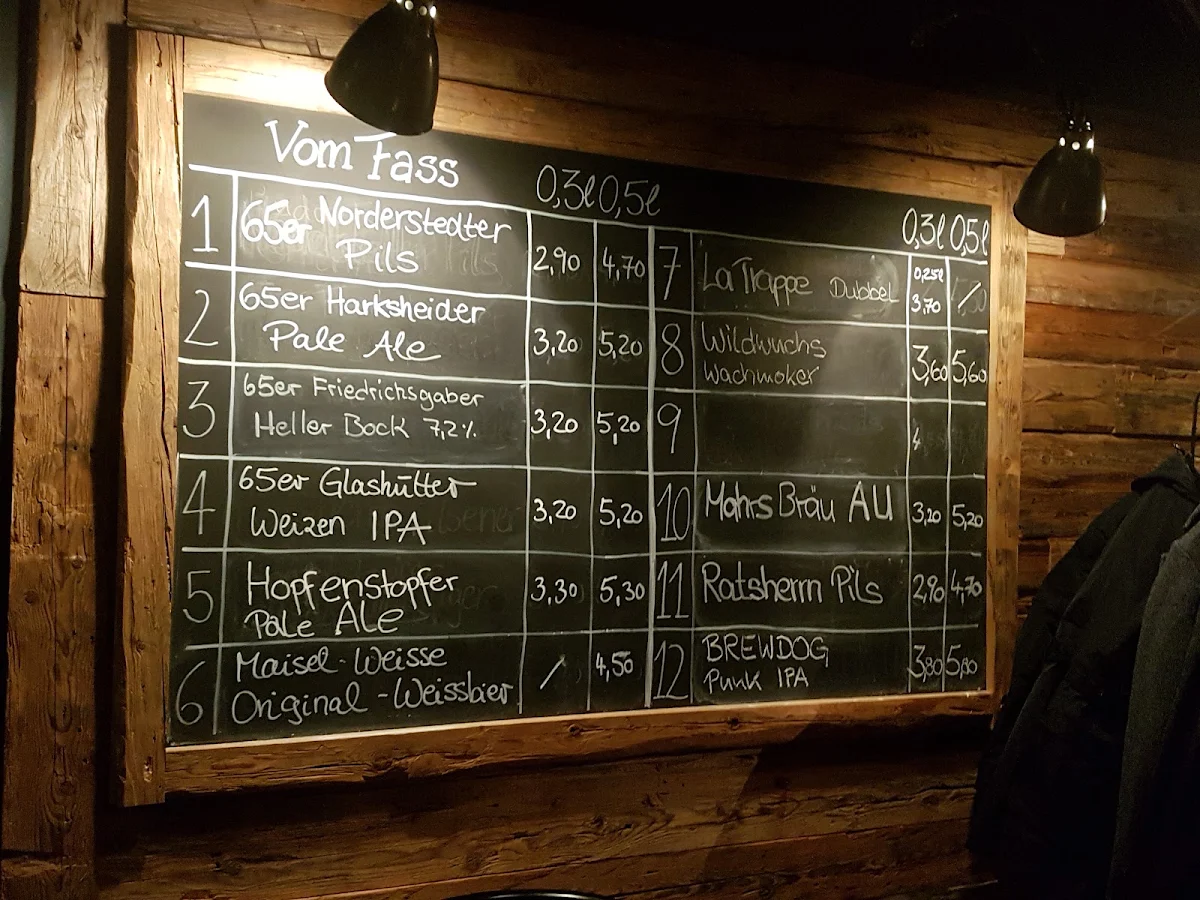 Vom Fass
0,3l 0,5l
1 65er Norderstedter
Pils 2,90 4,70
2 65er Harksheider
Pale Ale 3,20 5,20
3 65er Friedrichsgaber
Heller Bock 7,2% 3,20 5,20
4 65er Glashütter
Weizen IPA 3,20 5,20
5 Hopfenstopfer
Pale Ale 3,30 5,30
6 Maisel-Weisse
Original-Weissbier / 4,50
0,3l 0,5l
7 La Trappe Dubbel 0,25l
3,70 /
8 Wildwuchs
Wachmoker 3,60 5,60
9
10 Mahrs Bräu AU 3,20 5,20
11 Ratsherrn Pils 2,90 4,70
12 BREWDOG
Punk IPA 3,80 5,80